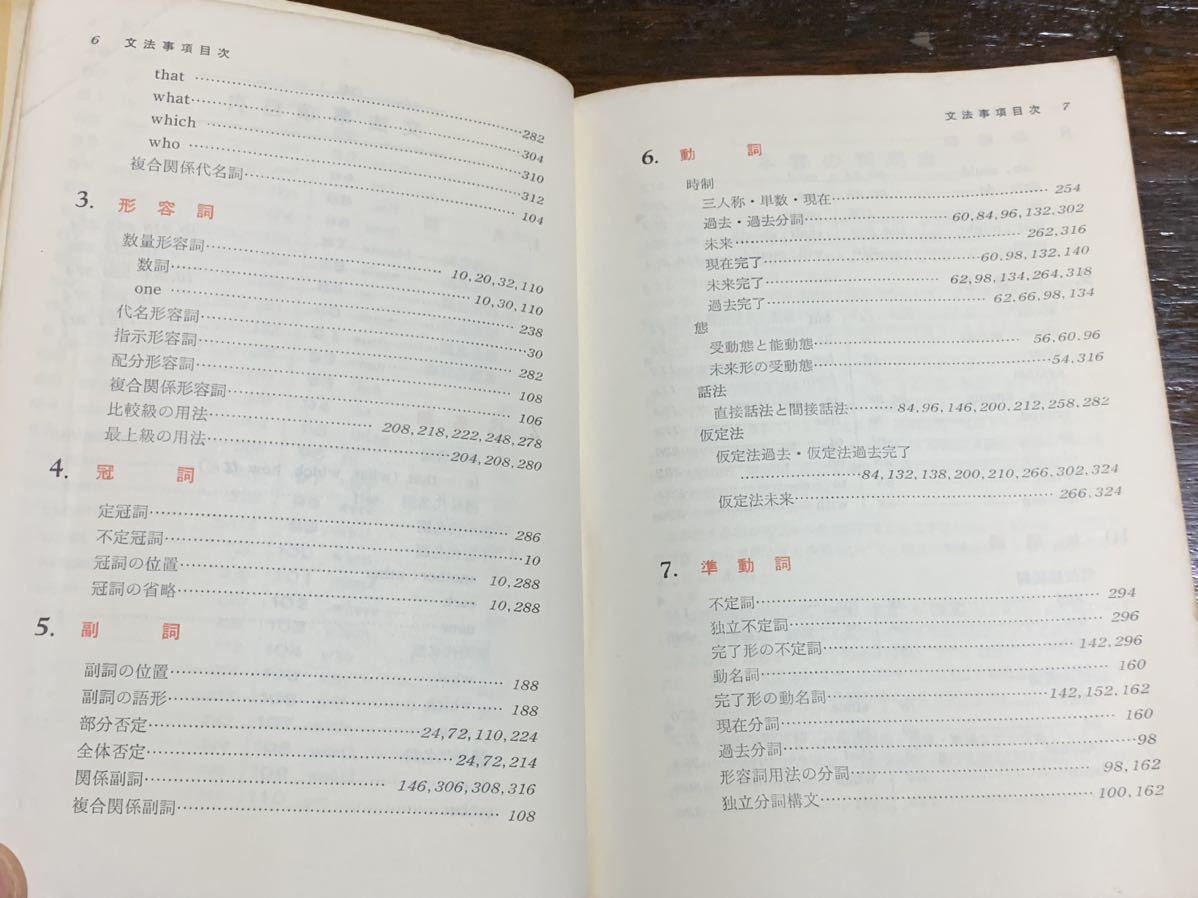 6 文法事項目次
that ……… 282
what ……… 304
which ……… 310
who ……… 312
複合関係代名詞 ……… 104
3. 形容詞
数量形容詞 ……… 10,20,32,110
数詞 ……… 10,30,110
one ……… 238
代名形容詞 ……… 30
指示形容詞 ……… 282
配分形容詞 ……… 108
複合関係形容詞 ……… 106
比較級の用法 ……… 208,218,222,248,278
最上級の用法 ……… 204,208,280
4. 冠詞
定冠詞 ……… 286
不定冠詞 ……… 10
冠詞の位置 ……… 10,288
冠詞の省略 ……… 10,288
5. 副詞
副詞の位置 ……… 188
副詞の語形 ……… 188
部分否定 ……… 24,72,110,224
全体否定 ……… 24,72,214
関係副詞 ……… 146,306,308,316
複合関係副詞 ……… 108
文法事項目次 7
6. 動詞
時制
三人称・単数・現在 ……… 254
過去・過去分詞 ……… 60,84,96,132,302
未来 ……… 262,316
現在完了 ……… 60,98,132,140
未来完了 ……… 62,98,134,264,318
過去完了 ……… 62,66,98,134
態
受動態と能動態 ……… 56,60,96
未来形の受動態 ……… 54,316
話法
直接話法と間接話法 ……… 84,96,146,200,212,258,282
仮定法
仮定法過去・仮定法過去完了
……… 84,132,138,200,210,266,302,324
仮定法未来 ……… 266,324
7. 準動詞
不定詞 ……… 294
独立不定詞 ……… 296
完了形の不定詞 ……… 142,296
動名詞 ……… 160
完了形の動名詞 ……… 142,152,162
現在分詞 ……… 160
過去分詞 ……… 98
形容詞用法の分詞 ……… 98,162
独立分詞構文 ……… 100,162